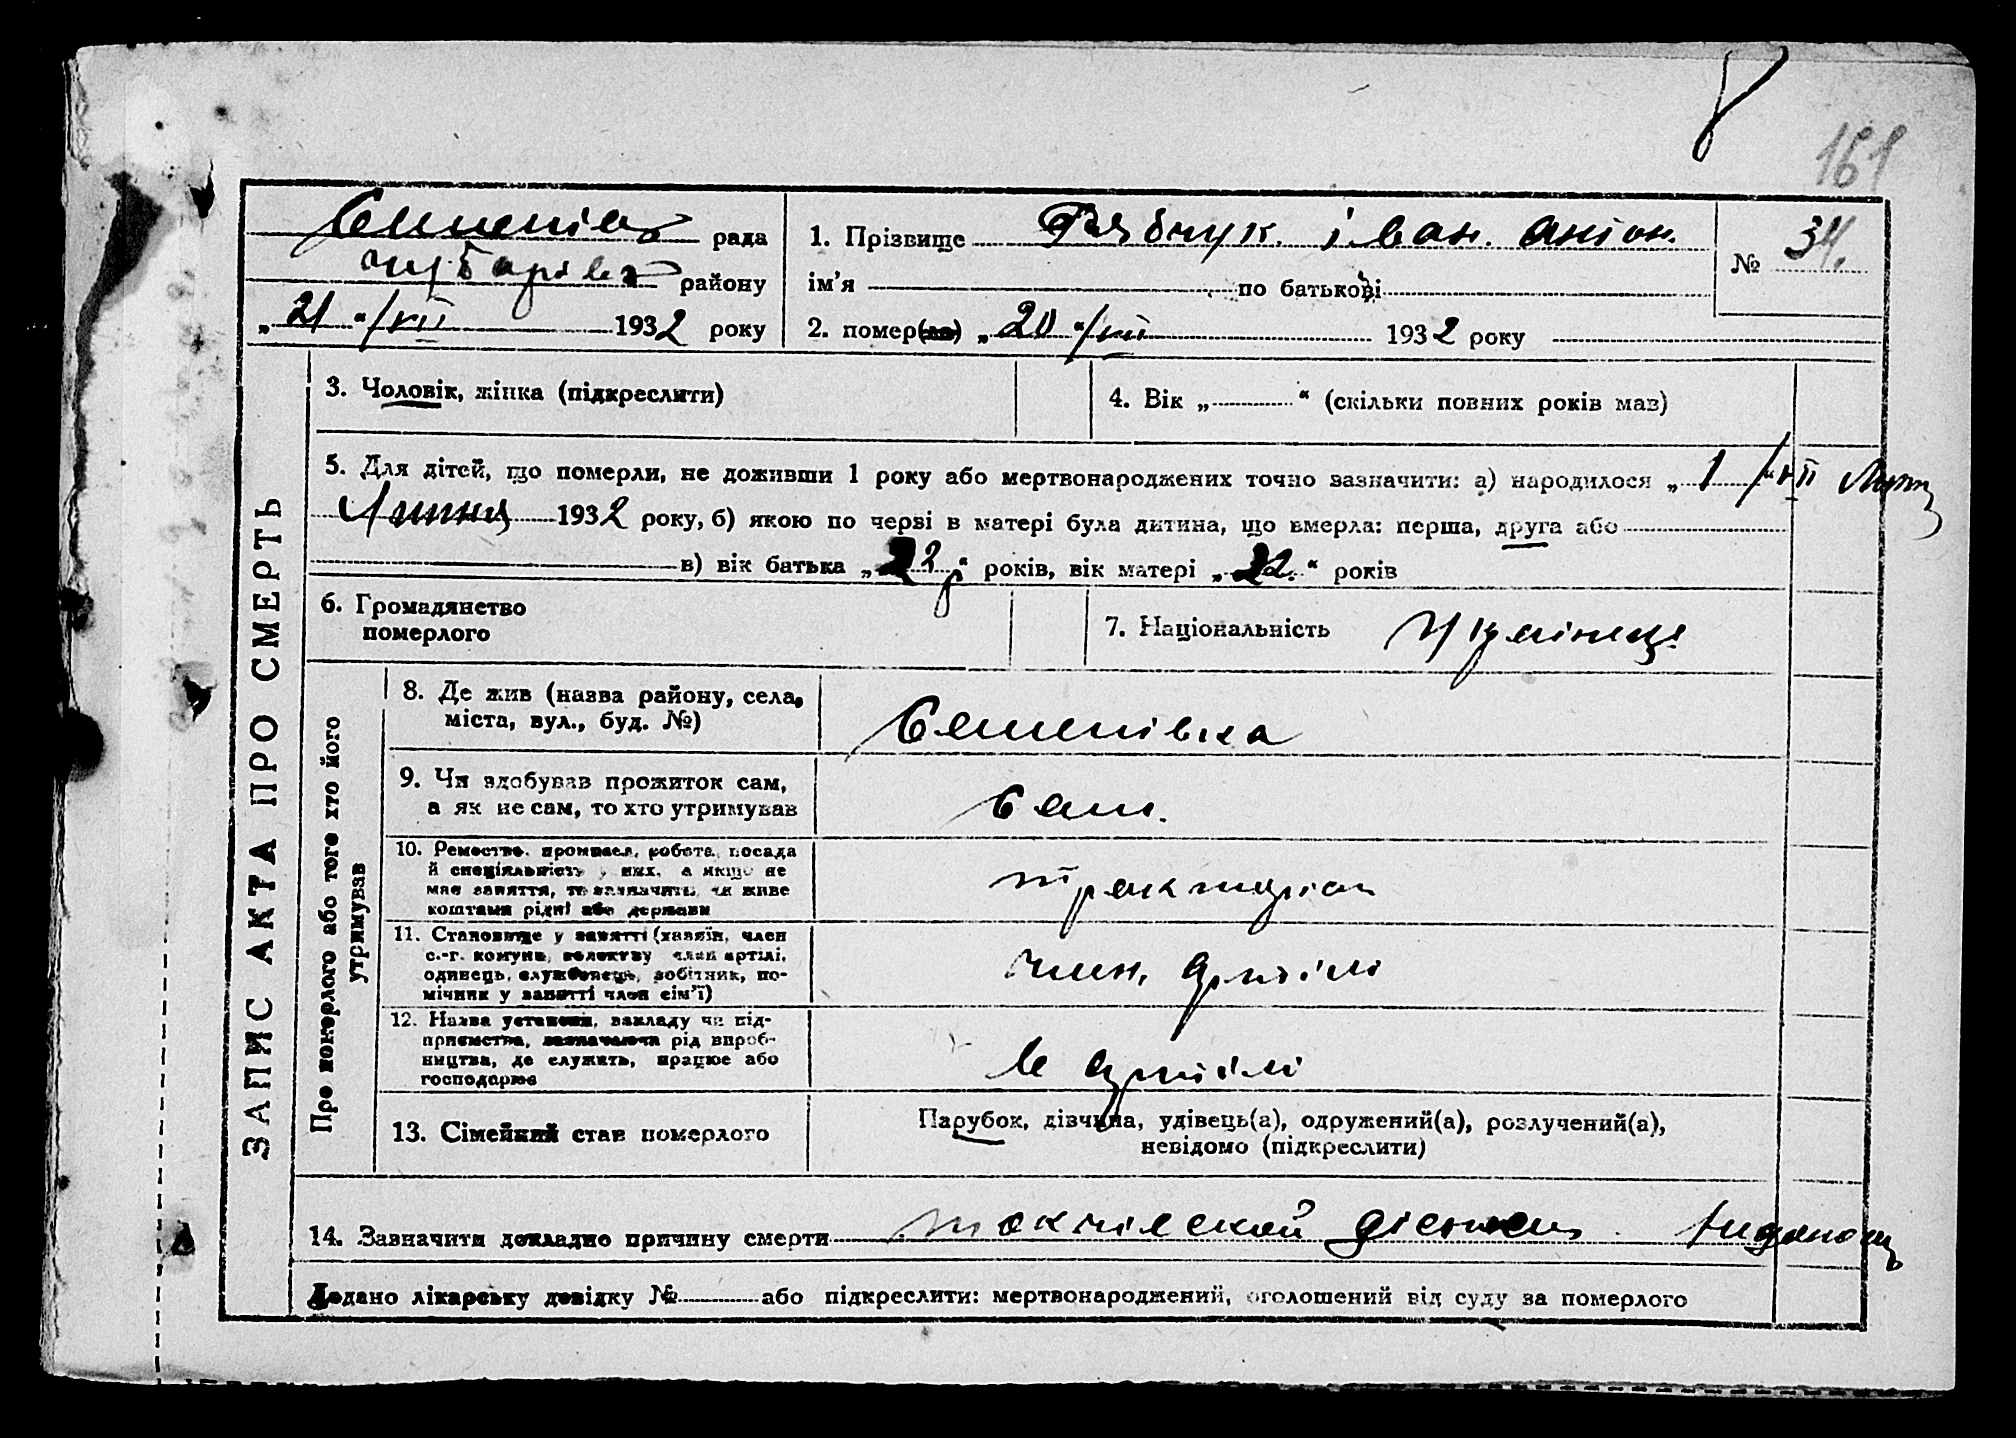 161
Семенівс рада
Чубарівс району
„21“/VII 1932 року
1. Прізвище Рябчук. іван. антон.
№ 34.
ім'я по батькові
2. помер(ла) „20“/VII 1932 року
ЗАПИС АКТА ПРО СМЕРТЬ
3. Чоловік, жінка (підкреслити)
4. Вік „ “ (скільки повних років мав)
5. Для дітей, що померли, не доживши 1 року або мертвонароджених точно зазначити: а) народилося „1/“VII
Липня 1932 року, б) якою по черзі в матері була дитина, що вмерла: перша, друга або
в) вік батька „22“ років, вік матері „22.“ років
6. Громадянство
померлого
7. Національність Українець
Про померлого або того хто його
утримував
8. Де жив (назва району, села,
міста, вул., буд. №) Семенівка
9. Чи здобував прожиток сам,
а як не сам, то хто утримував Сам.
10. Ремество, промисел, робота, посада
й спеціяльність у них, а якщо не
має заняття, то зазначить, чи живе
коштами рідні або держави
11. Становище у занятті (хазяїн, член
с.-г. комуни, колективу член артілі,
одинець, службовець, робітник, по-
мічник у занятті член сім'ї) член. артілі
12. Назва установи, закладу чи під-
приємства, зазначаючи рід вироб-
ництва, де служить, працює або
господарює В артілі
13. Сімейний стан померлого
Парубок, дівчина, удівець(а), одружений(а), розлучений(а),
невідомо (підкреслити)
14. Зазначити докладно причину смерти
Додано лікарську довідку № або підкреслити: мертвонароджений, оголошений від суду за померлого